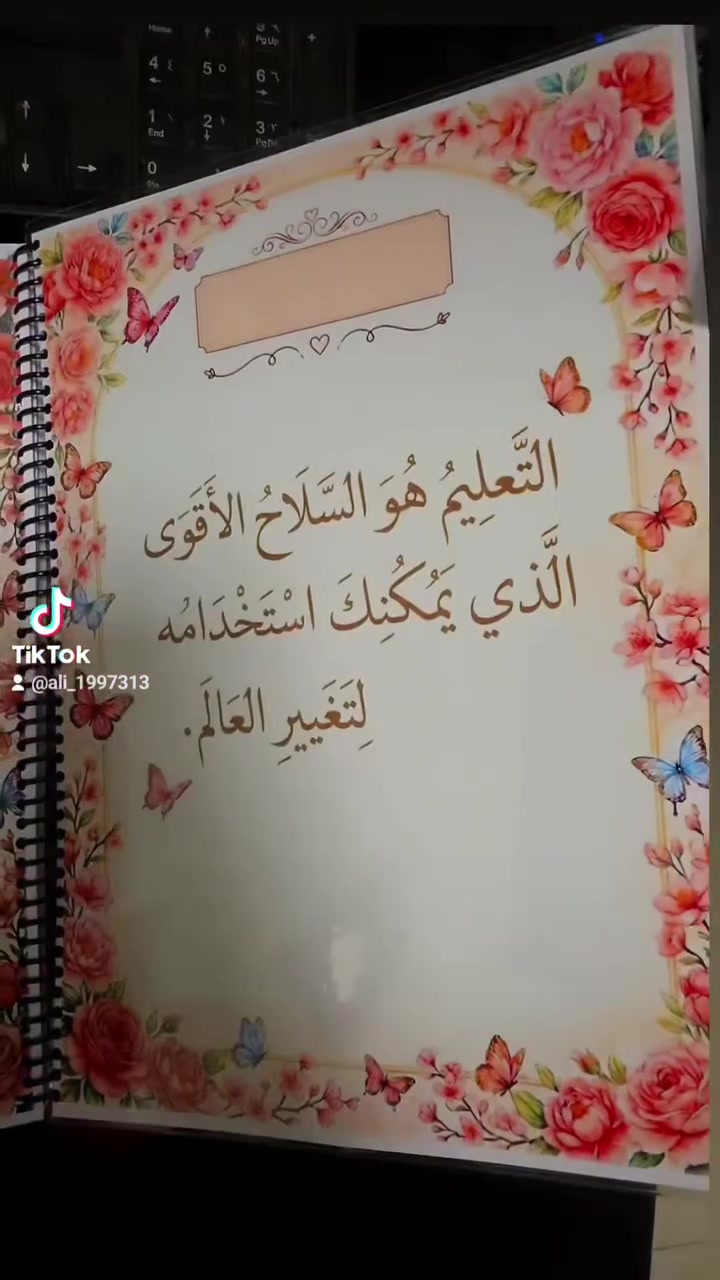 Home ↑ PgUp +
4 ٤ 5 ٥ 6 ٦
← →
↑ 1 ١ 2 ٢ 3 ٣
End ↓ PgDn
↓ → 0
التَّعلِيمُ هُوَ السَّلَاحُ الأَقَوَى
الَّذي يَمُكُنِكَ اسْتَخْدَامُه
لِتَغَييرِ العَالَم.
TikTok
@ali_1997313